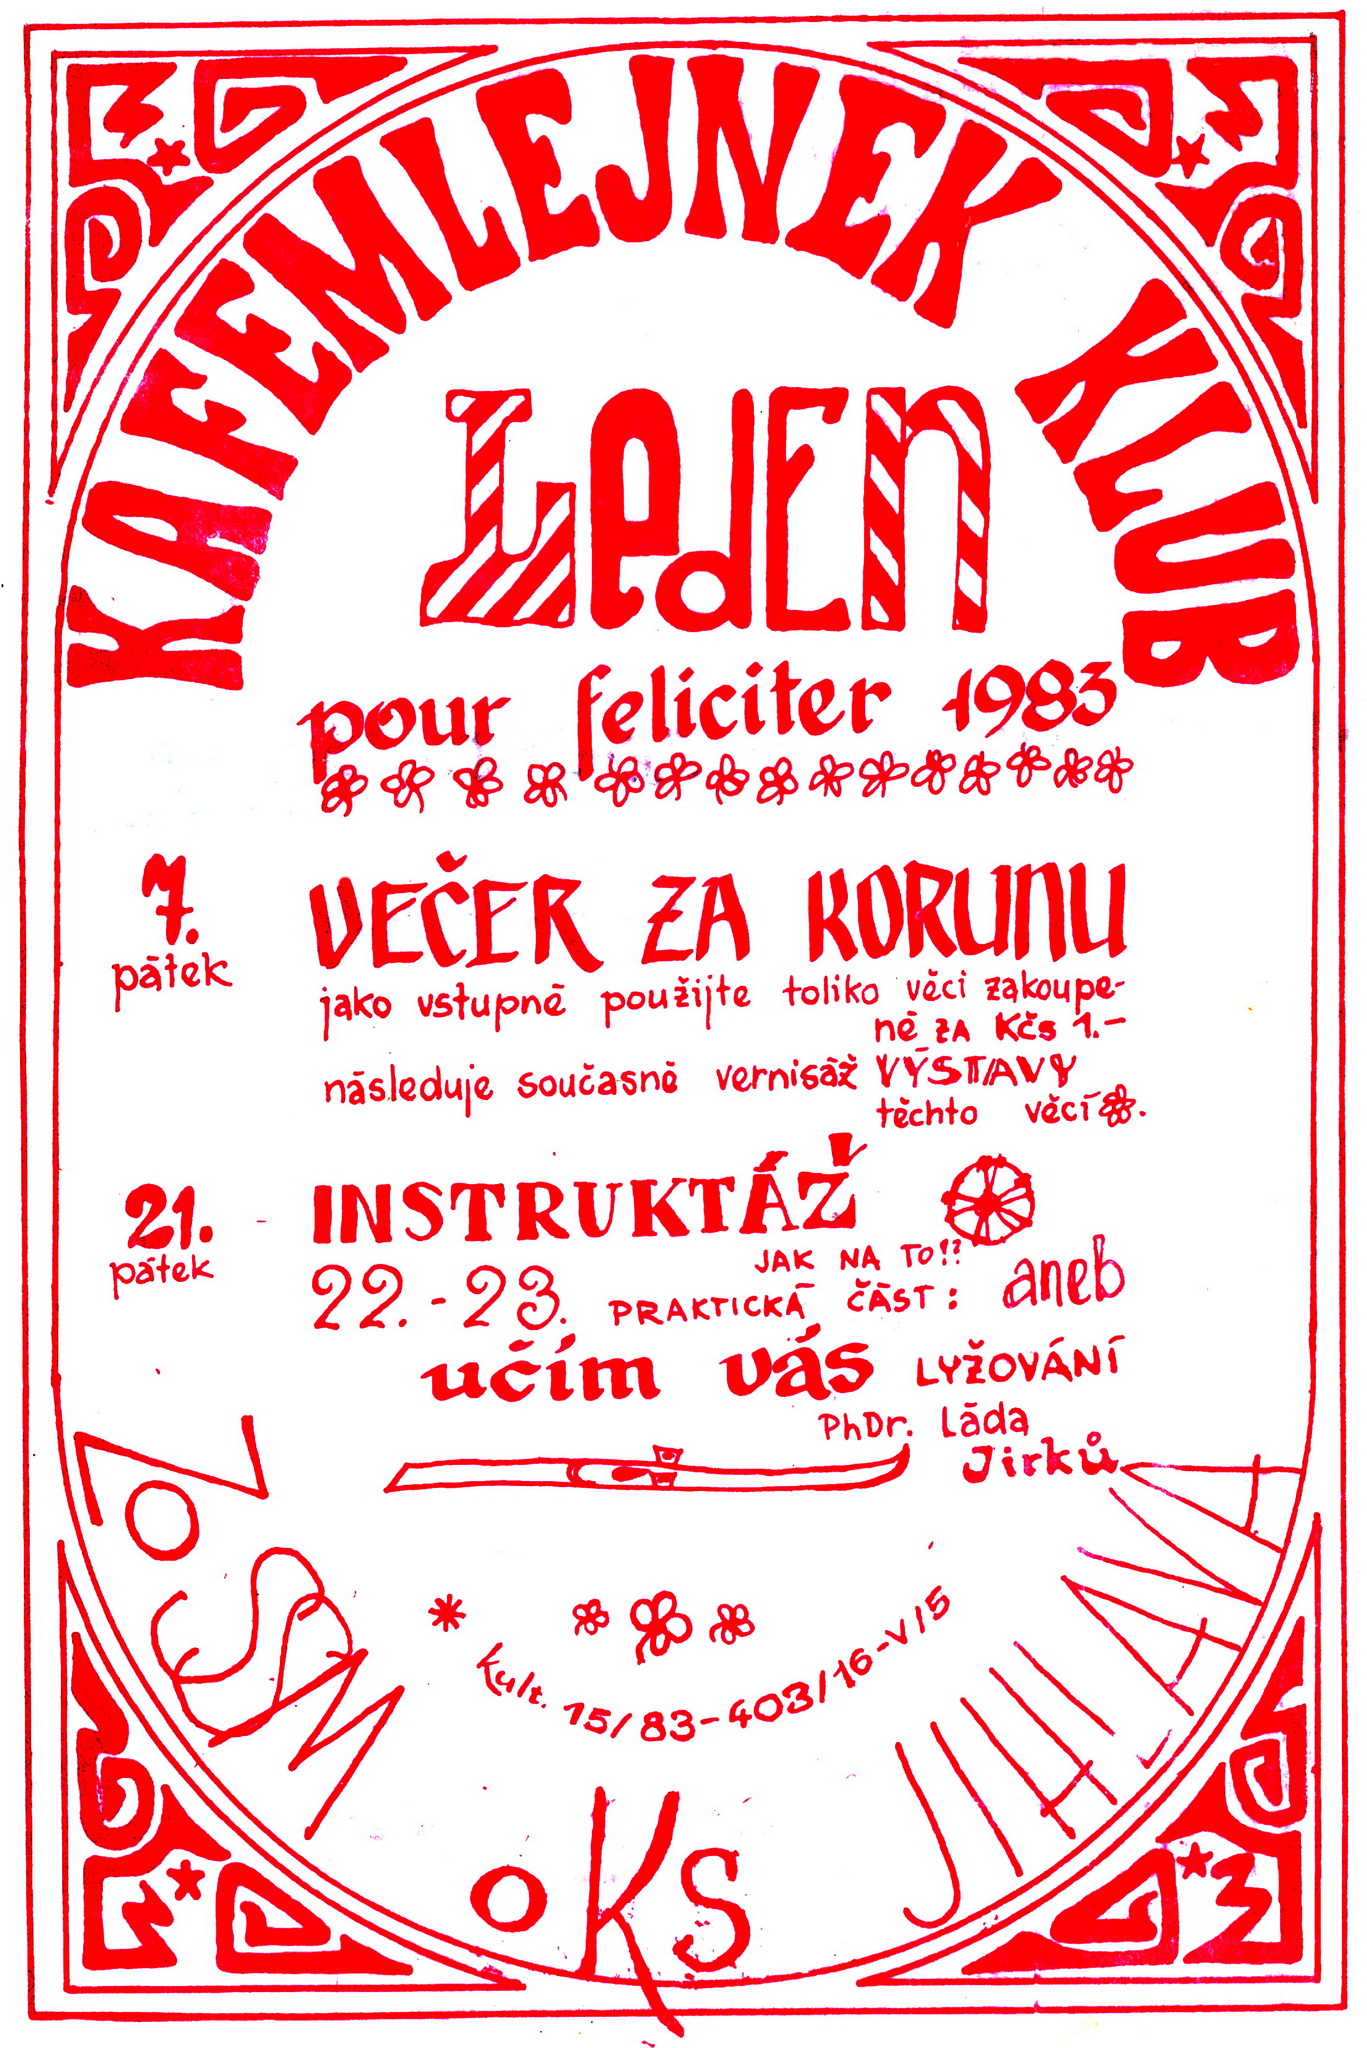 KAFEMLEJNEK KLUB
LEDEN
pour feliciter 1983
7.
pátek
VEČER ZA KORUNU
jako vstupné použijte toliko věci zakoupe-
né ZA Kčs 1.-
následuje současně vernisáž VÝSTAVY
těchto věcí.
21.
pátek
INSTRUKTÁŽ
JAK NA TO!?
22.-23. PRAKTICKÁ ČÁST: aneb
učím vás LYŽOVÁNÍ
PhDr. Láda
Jirků
Kult. 15/83-403/16-V/5
ZO SSM
OKS
JIHLAVA